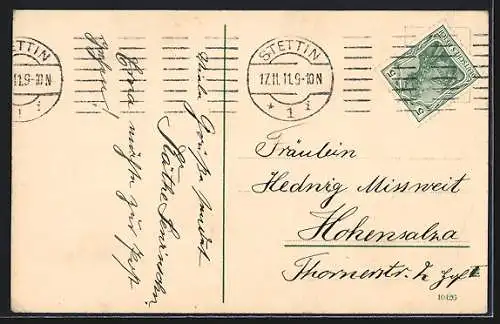 STETTIN
11.9-10N
1 i
STETTIN
17.11.11.9-10N
* 1 i
DEUTSCHES REICH
5
5
Viele Grüße sendet
Käthe
Erna möchte zur Post
Fräulein
Hedwig Missweit
Hohensalza
Thornerstr.
10426